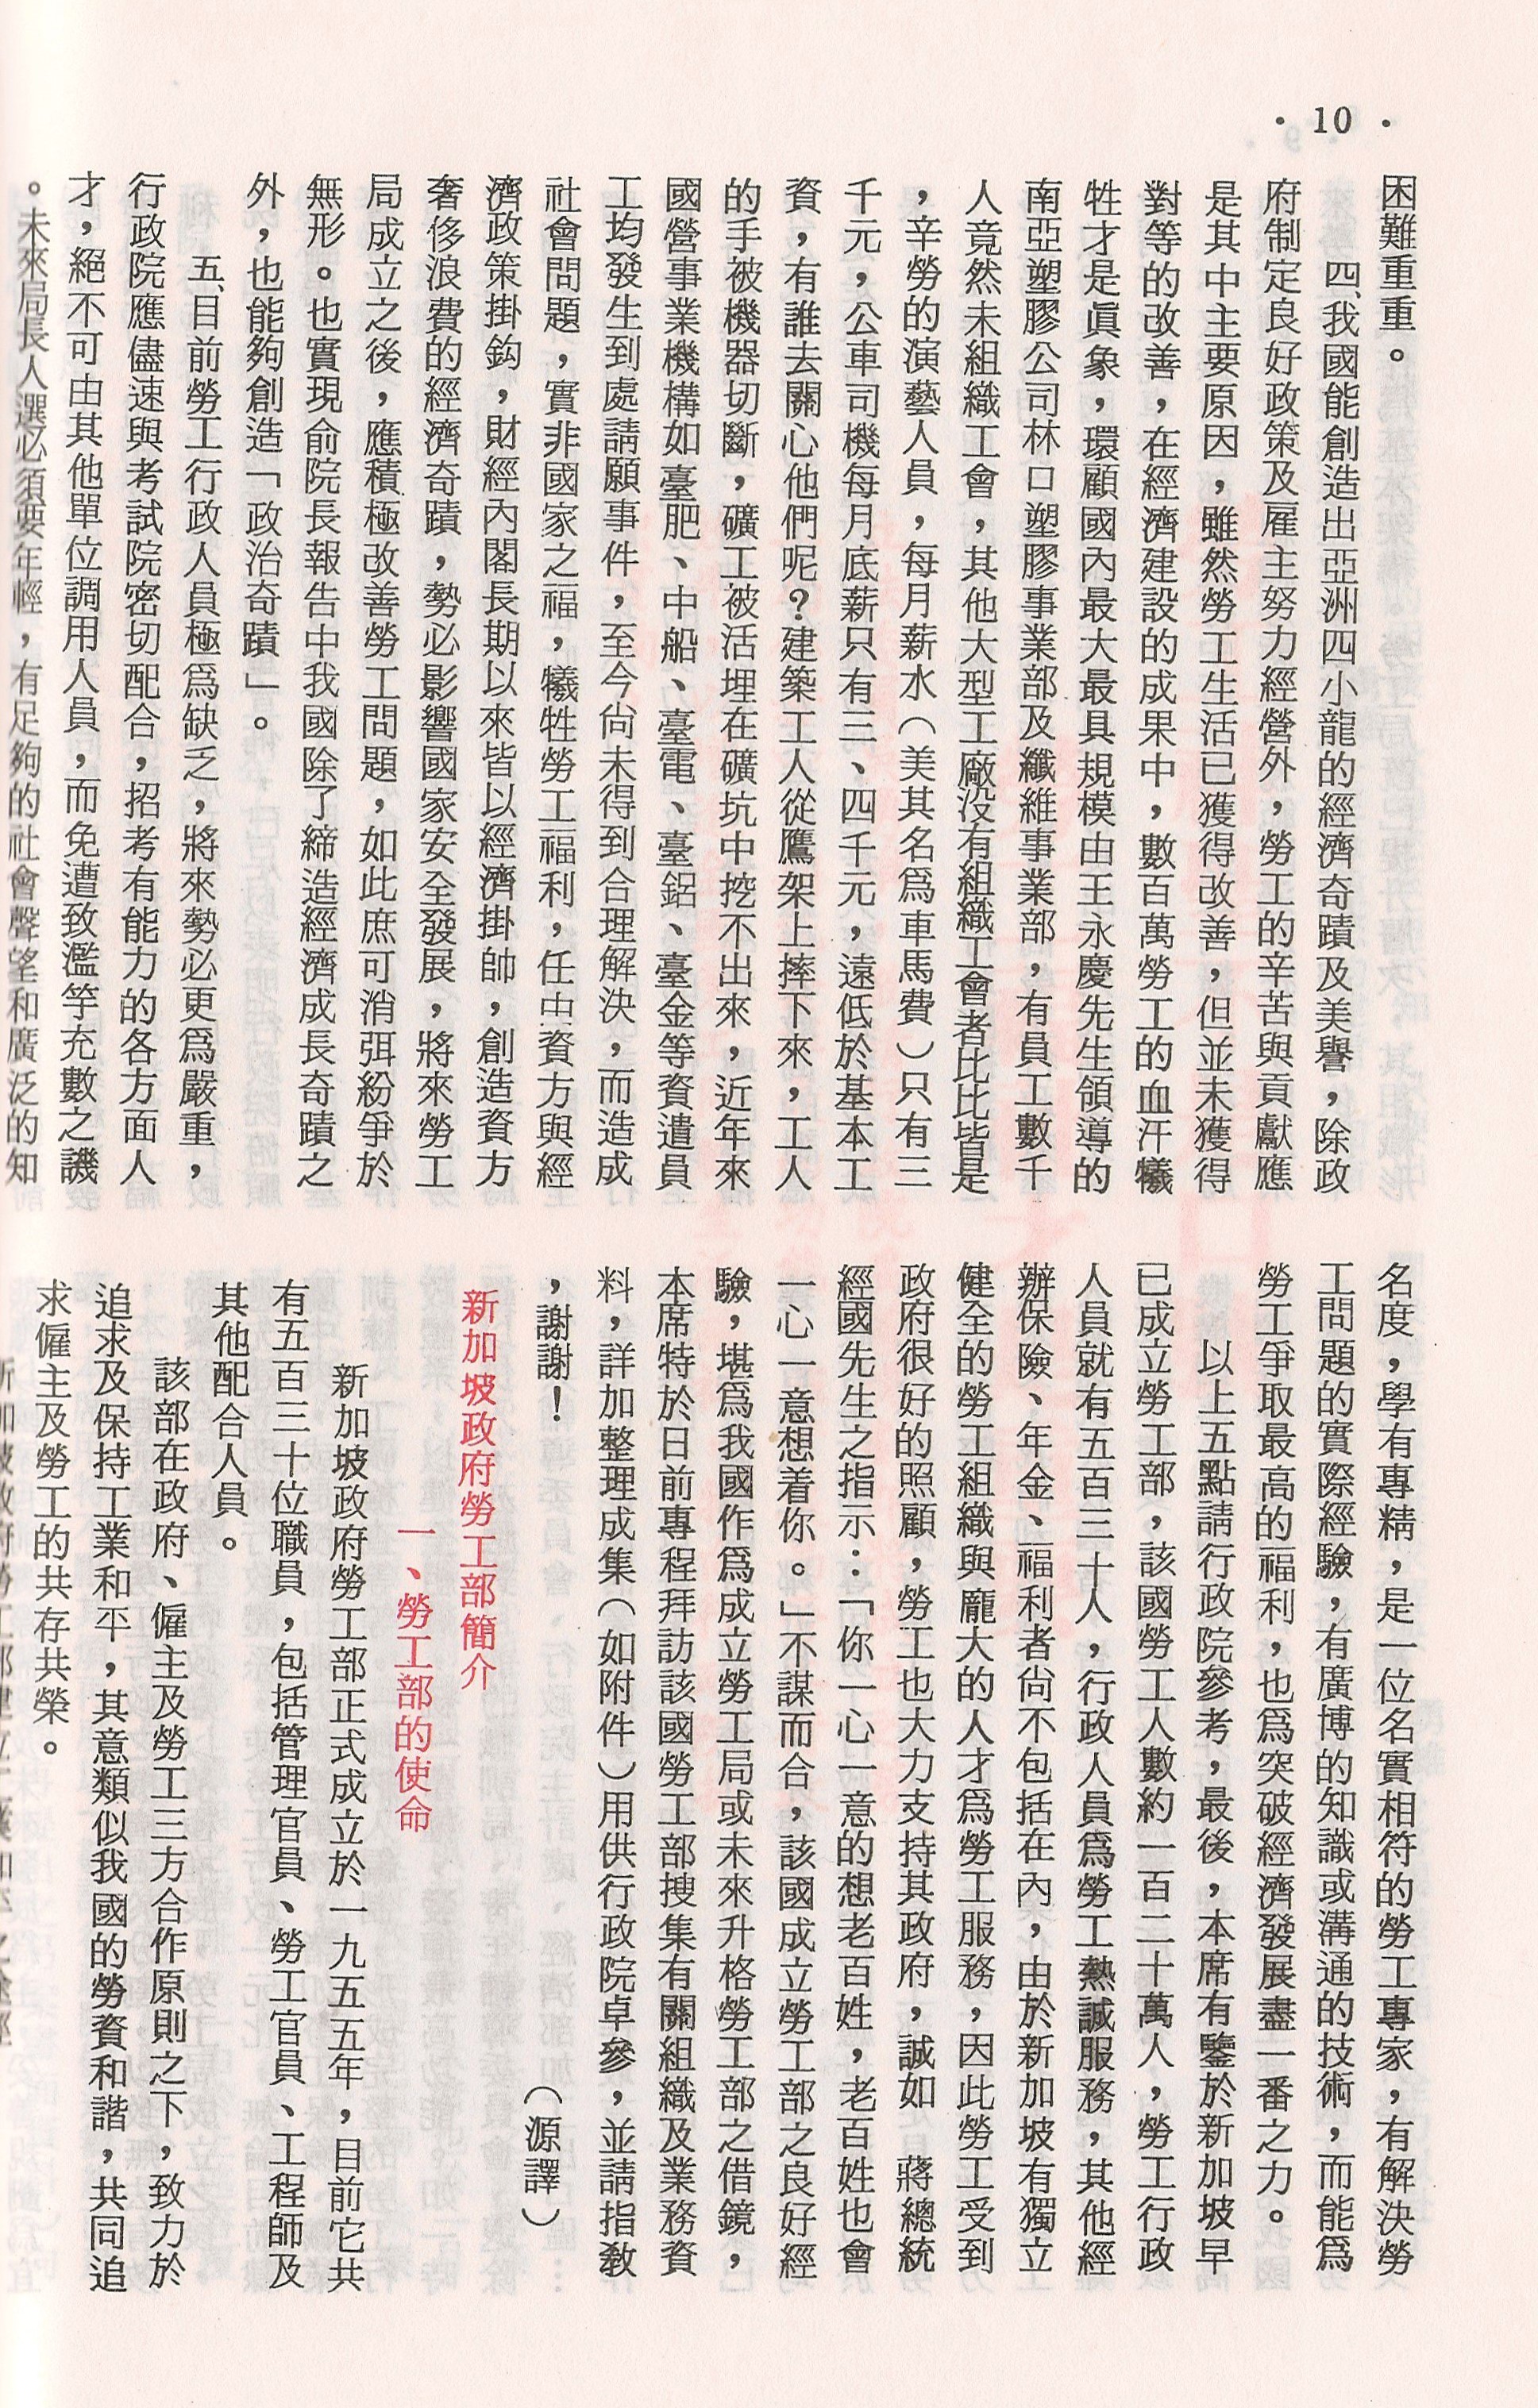 · 10 ·
困難重重。
四、我國能創造出亞洲四小龍的經濟奇蹟及美譽，除政
府制定良好政策及雇主努力經營外，勞工的辛苦與貢獻應
是其中主要原因，雖然勞工生活已獲得改善，但並未獲得
對等的改善，在經濟建設的成果中，數百萬勞工的血汗犧
牲才是眞象，環顧國內最大最具規模由王永慶先生領導的
南亞塑膠公司林口塑膠事業部及纖維事業部，有員工數千
人竟然未組織工會，其他大型工廠没有組織工會者比比皆是
，辛勞的演藝人員，每月薪水（美其名爲車馬費）只有三
千元，公車司機每月底薪只有三、四千元，遠低於基本工
資，有誰去關心他們呢？建築工人從鷹架上摔下來，工人
的手被機器切斷，礦工被活埋在礦坑中挖不出來，近年來
國營事業機構如臺肥、中船、臺電、臺鋁、臺金等資遣員
工均發生到處請願事件，至今尙未得到合理解決，而造成
社會問題，實非國家之福，犧牲勞工福利，任由資方與經
濟政策掛鈎，財經內閣長期以來皆以經濟掛帥，創造資方
奢侈浪費的經濟奇蹟，勢必影響國家安全發展，將來勞工
局成立之後，應積極改善勞工問題，如此庶可消弭紛爭於
無形。也實現俞院長報告中我國除了締造經濟成長奇蹟之
外，也能夠創造「政治奇蹟」。
五、目前勞工行政人員極爲缺乏，將來勢必更爲嚴重，
行政院應儘速與考試院密切配合，招考有能力的各方面人
才，絕不可由其他單位調用人員，而免遭致濫竽充數之譏
。未來局長人選必須要年輕，有足夠的社會聲望和廣泛的知
名度，學有專精，是一位名實相符的勞工專家，有解決勞
工問題的實際經驗，有廣博的知識或溝通的技術，而能爲
勞工爭取最高的福利，也爲突破經濟發展盡一番之力。
以上五點請行政院參考，最後，本席有鑒於新加坡早
已成立勞工部，該國勞工人數約一百二十萬人，勞工行政
人員就有五百三十人，行政人員爲勞工熱誠服務，其他經
辦保險、年金、福利者尙不包括在內，由於新加坡有獨立
健全的勞工組織與龐大的人才爲勞工服務，因此勞工受到
政府很好的照顧，勞工也大力支持其政府，誠如　蔣總統
經國先生之指示：「你一心一意的想老百姓，老百姓也會
一心一意想着你。」不謀而合，該國成立勞工部之良好經
驗，堪爲我國作爲成立勞工局或未來升格勞工部之借鏡，
本席特於日前專程拜訪該國勞工部搜集有關組織及業務資
料，詳加整理成集（如附件）用供行政院卓參，並請指敎
，謝謝！
（源譯）
新加坡政府勞工部簡介
一、勞工部的使命
新加坡政府勞工部正式成立於一九五五年，目前它共
有五百三十位職員，包括管理官員、勞工官員、工程師及
其他配合人員。
該部在政府、僱主及勞工三方合作原則之下，致力於
追求及保持工業和平，其意類似我國的勞資和諧，共同追
求僱主及勞工的共存共榮。